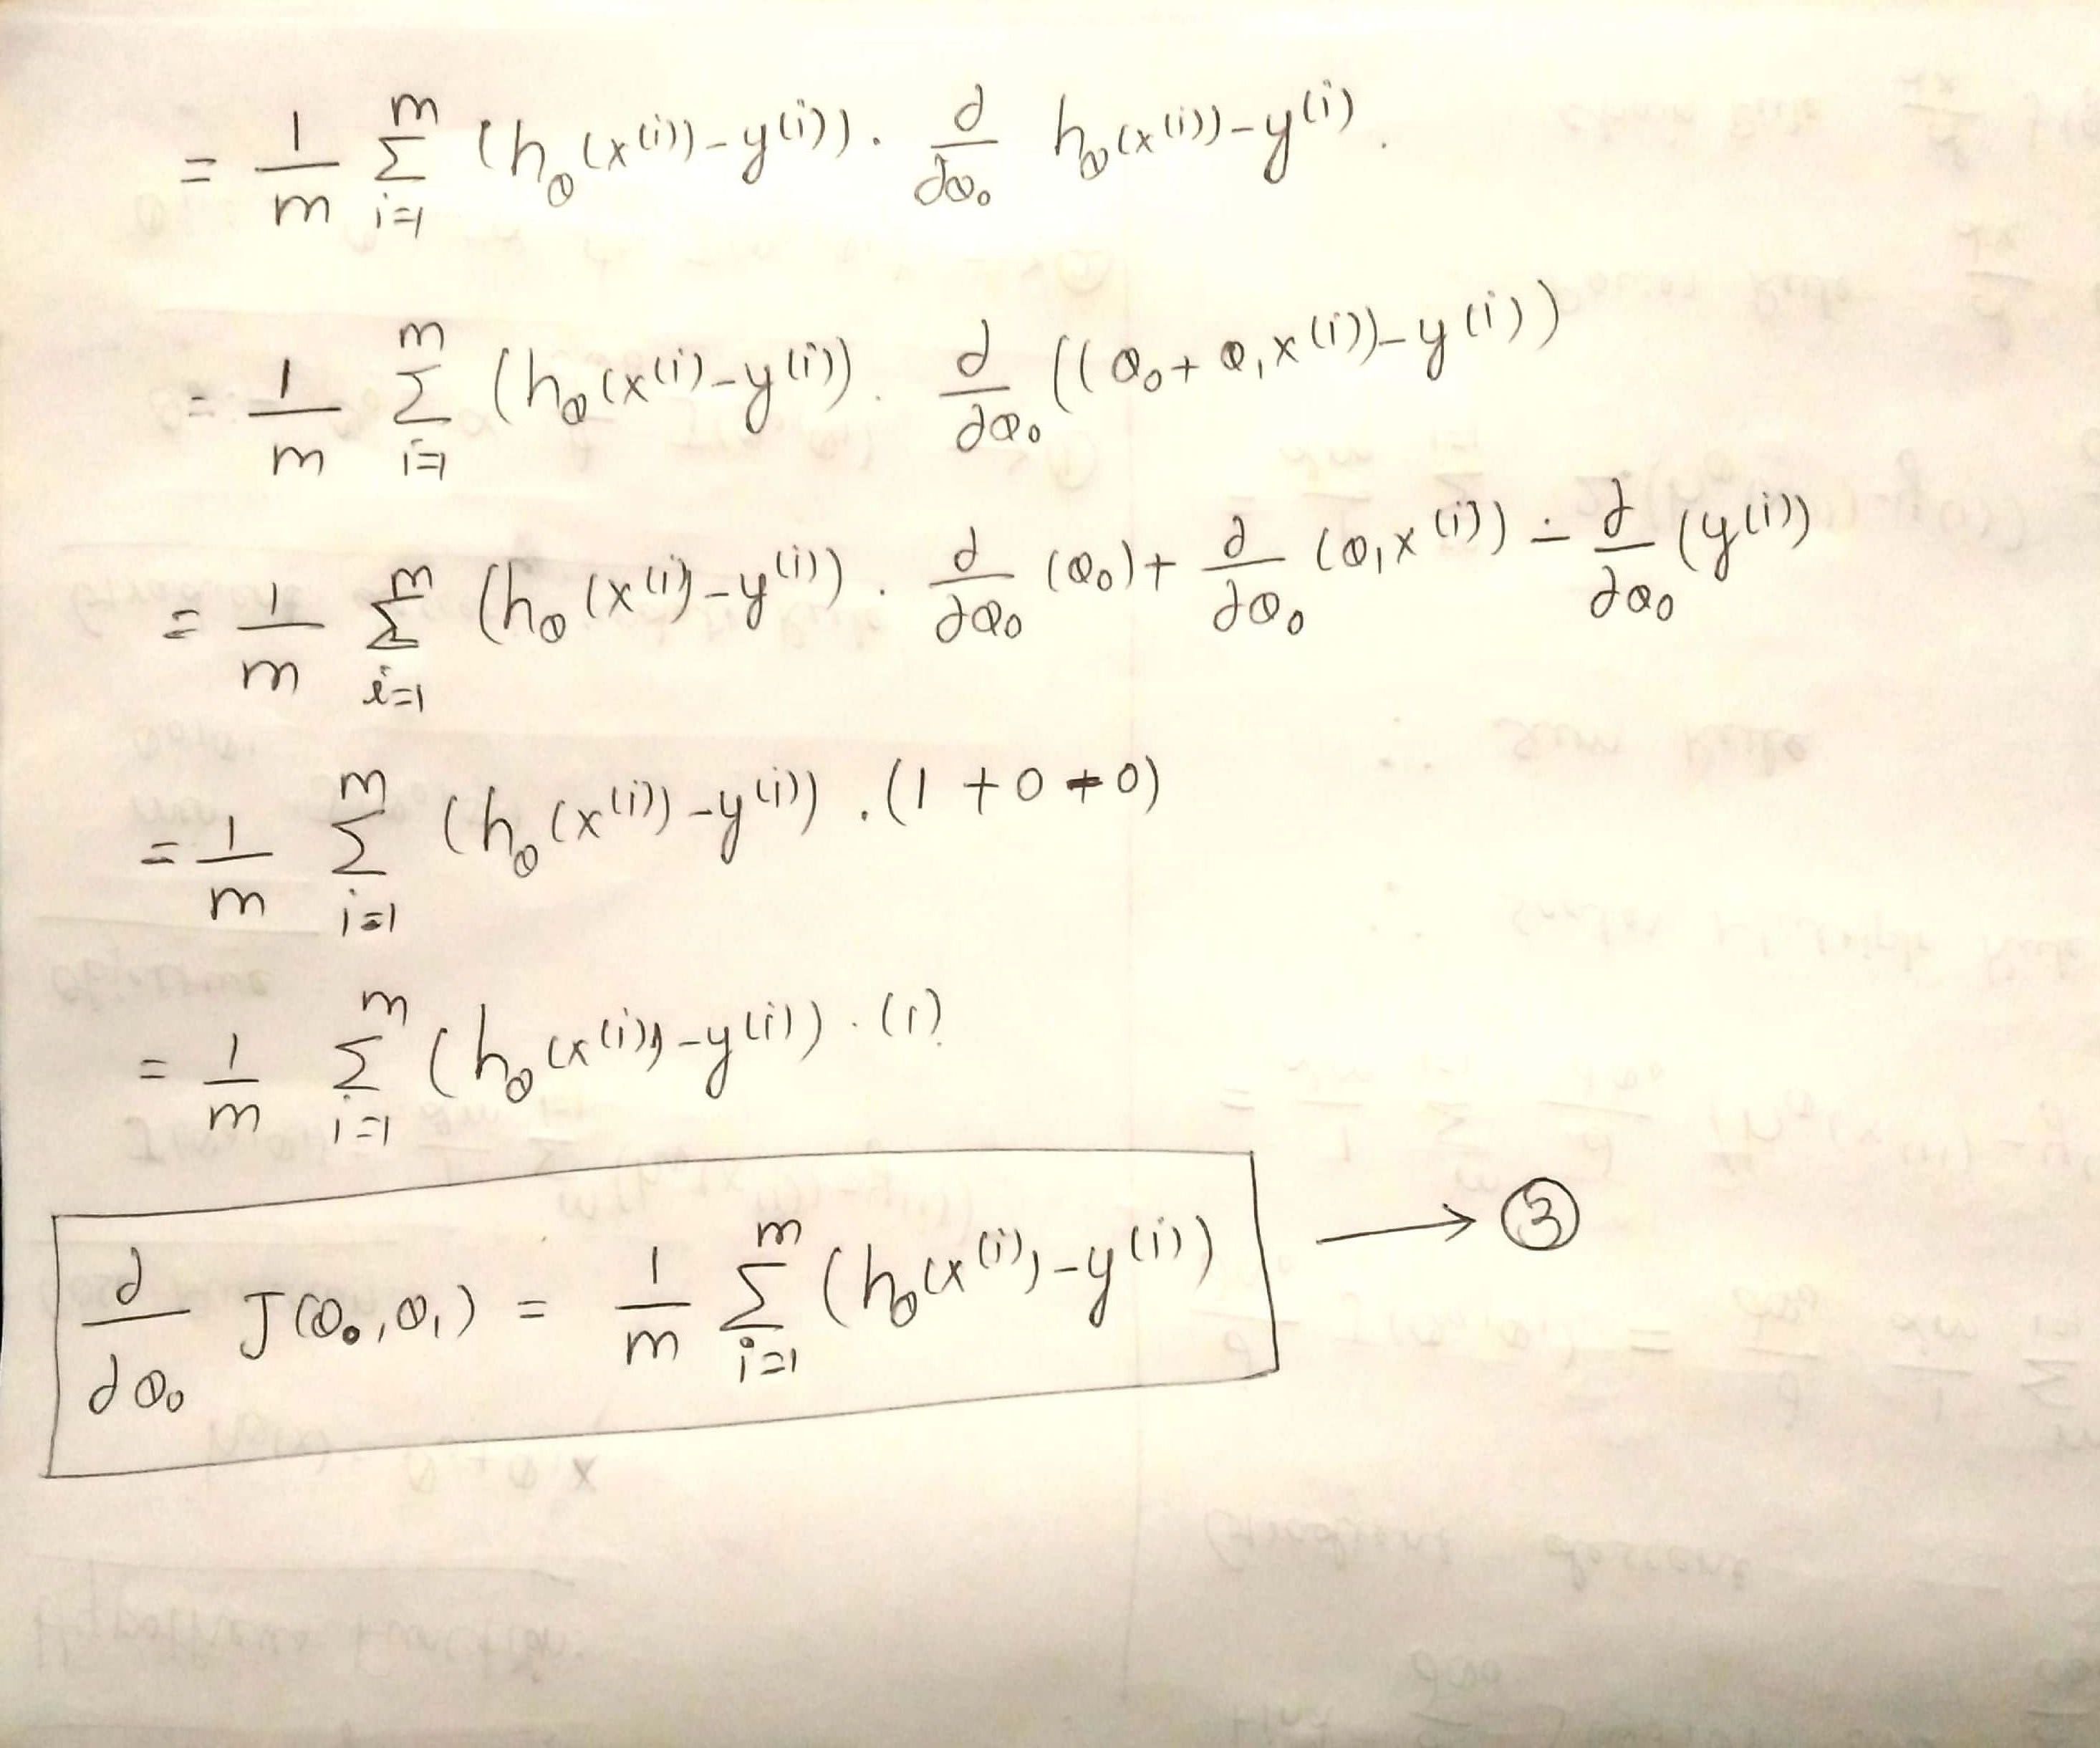 = 1/m Σ_{i=1}^{m} (h_θ(x^{(i)}) - y^{(i)}) . ∂/∂θ₀ h_θ(x^{(i)}) - y^{(i)}.
= 1/m Σ_{i=1}^{m} (h_θ(x^{(i)} - y^{(i)}) . ∂/∂θ₀ ((θ₀ + θ₁x^{(i)}) - y^{(i)})
= 1/m Σ_{i=1}^{m} (h_θ(x^{(i)}) - y^{(i)}) . ∂/∂θ₀ (θ₀) + ∂/∂θ₀ (θ₁x^{(i)}) - ∂/∂θ₀ (y^{(i)})
= 1/m Σ_{i=1}^{m} (h_θ(x^{(i)}) - y^{(i)}) . (1 + 0 - 0)
= 1/m Σ_{i=1}^{m} (h_θ(x^{(i)}) - y^{(i)}) . (1)
∂/∂θ₀ J(θ₀, θ₁) = 1/m Σ_{i=1}^{m} (h_θ(x^{(i)}) - y^{(i)}) → ③